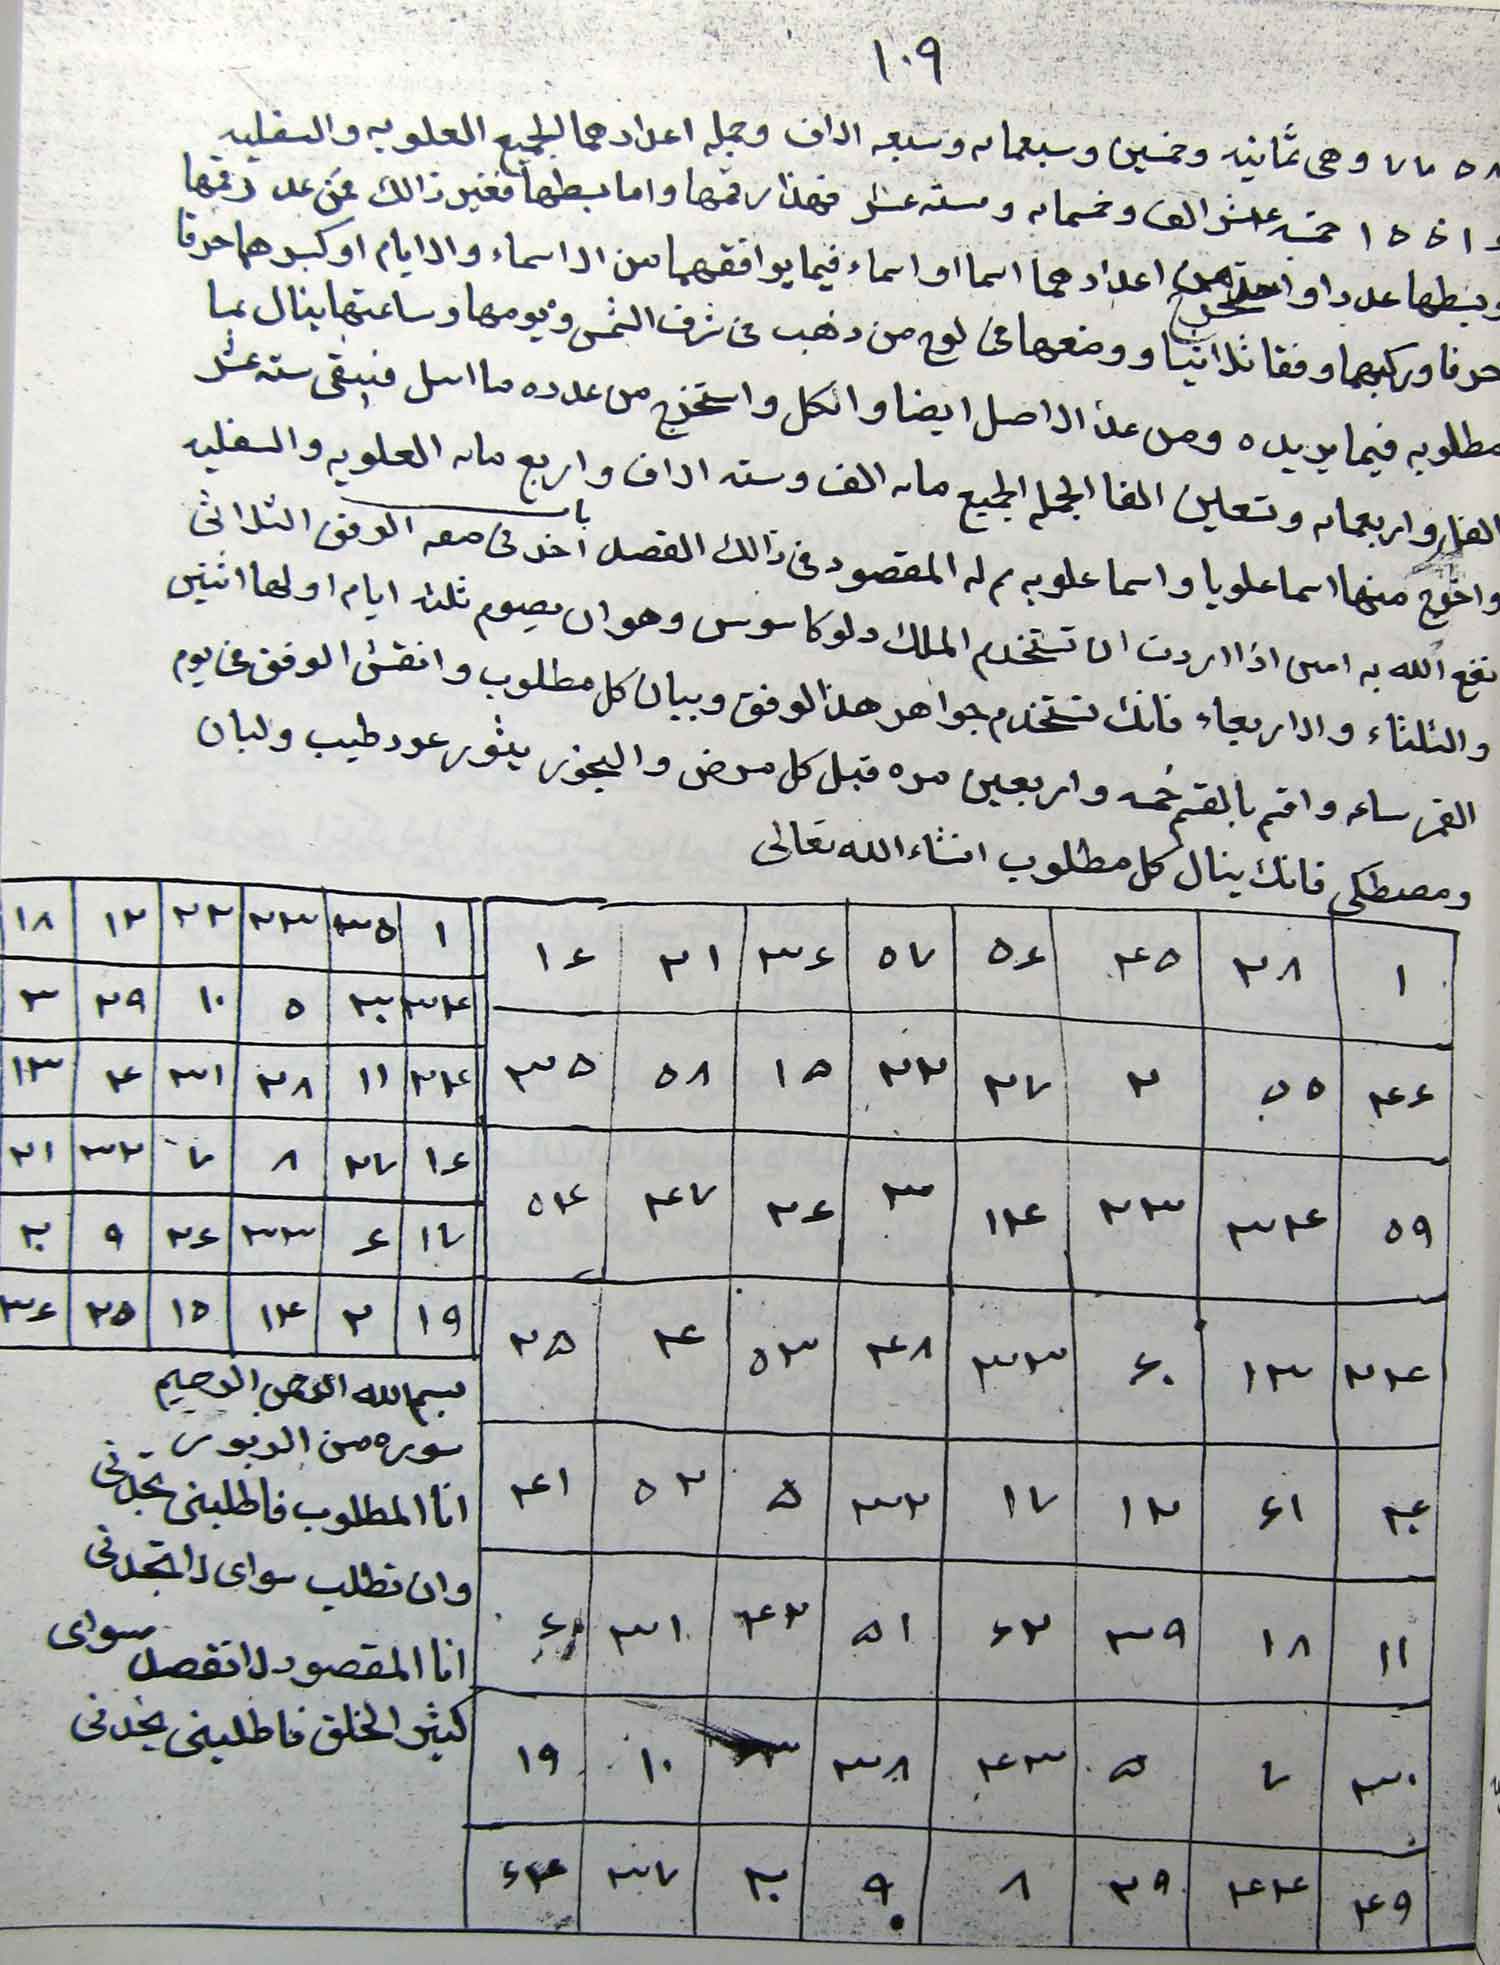 ١٠٩
٧٧٥٨ وهى ثمانيه وخمسين وسبعمايه وسبعه الاف وجمله اعدادهما الجميع العلويه والسفليه
١٥٥١٦ خمسة عشر الف وخمسمايه وسته عشر فهذا رقمها واما بسطها فغير ذالك فمن عد رقمها
وبسطها عددا واستخرج من اعدادهما اسما او اسماء فيما يوافقهما من الاسماء والايام او كبرهما حرفا
حرفا وركبهما وفقا ثلاثيا ووضعها فى لوح من ذهب فى شرف الشمس ويومها وساعتها ينال بها
مطلوبه فيما يريده ومن عد الاصل ايضا والكل واستخرج من عدده مااسل فيبقى سته عشر
الفا واربعمايه وتسعين الفا الجمله الجميع مايه الف وسته الاف واربع مايه العلويه والسفليه
واخرج منها اسما علويا واسما علويه تم له المقصود فى ذالك الفصل باب اخر فى صفه الوفق الثلاثى
نفع الله به امين اذا اردت ان تستخدم الملك دلوكاسوس وهو ان يصوم ثلثه ايام اولها اثنين
والثلثاء والاربعاء فانك تستخدم جواهر هذا الوفق وبيان كل مطلوب وانقش الوفق فى يوم
القمر ساعه واقسم بالقسم خمسه واربعين مره قبل كل مرض والبخور ينثور عود طيب ولبان
ومصطكى فانك ينال كل مطلوب انشاء الله تعالى
١ ٢٨ ٤٥ ٥٦ ٥٧ ٣٦ ٢١ ١٦
٤٦ ٥٥ ٢ ٢٧ ٢٢ ١٥ ٥٨ ٣٥
٥٩ ٣٤ ٢٣ ١٤ ٣ ٢٦ ٤٧ ٥٤
٢٤ ١٣ ٦٠ ٣٣ ٤٨ ٥٣ ٤ ٢٥
٤٠ ٦١ ١٢ ١٧ ٣٢ ٥ ٥٢ ٤١
١١ ١٨ ٣٩ ٦٢ ٥١ ٤٢ ٣١ ٦
٣٠ ٧ ٥٠ ٤٣ ٣٨ ٦٣ ١٠ ١٩
٤٩ ٤٤ ٢٩ ٨ ٩ ٢٠ ٣٧ ٦٤
١ ٣٥ ٢٣ ٢٢ ١٢ ١٨
٣٤ ٣٠ ٥ ١٠ ٢٩ ٣
٢٤ ١١ ٢٨ ٣١ ٤ ١٣
١٦ ٢٧ ٨ ٧ ٣٢ ٢١
١٧ ٦ ٣٣ ٢٦ ٩ ٢٠
١٩ ٢ ١٤ ١٥ ٢٥ ٣٦
بسم الله الرحمن الرحيم
سوره من الزبور
انا المطلوب فاطلبنى تجدنى
وان تطلب سواى لا تجدنى
انا المقصود لا تقصد سواى
كثير الخلق فاطلبنى تجدنى